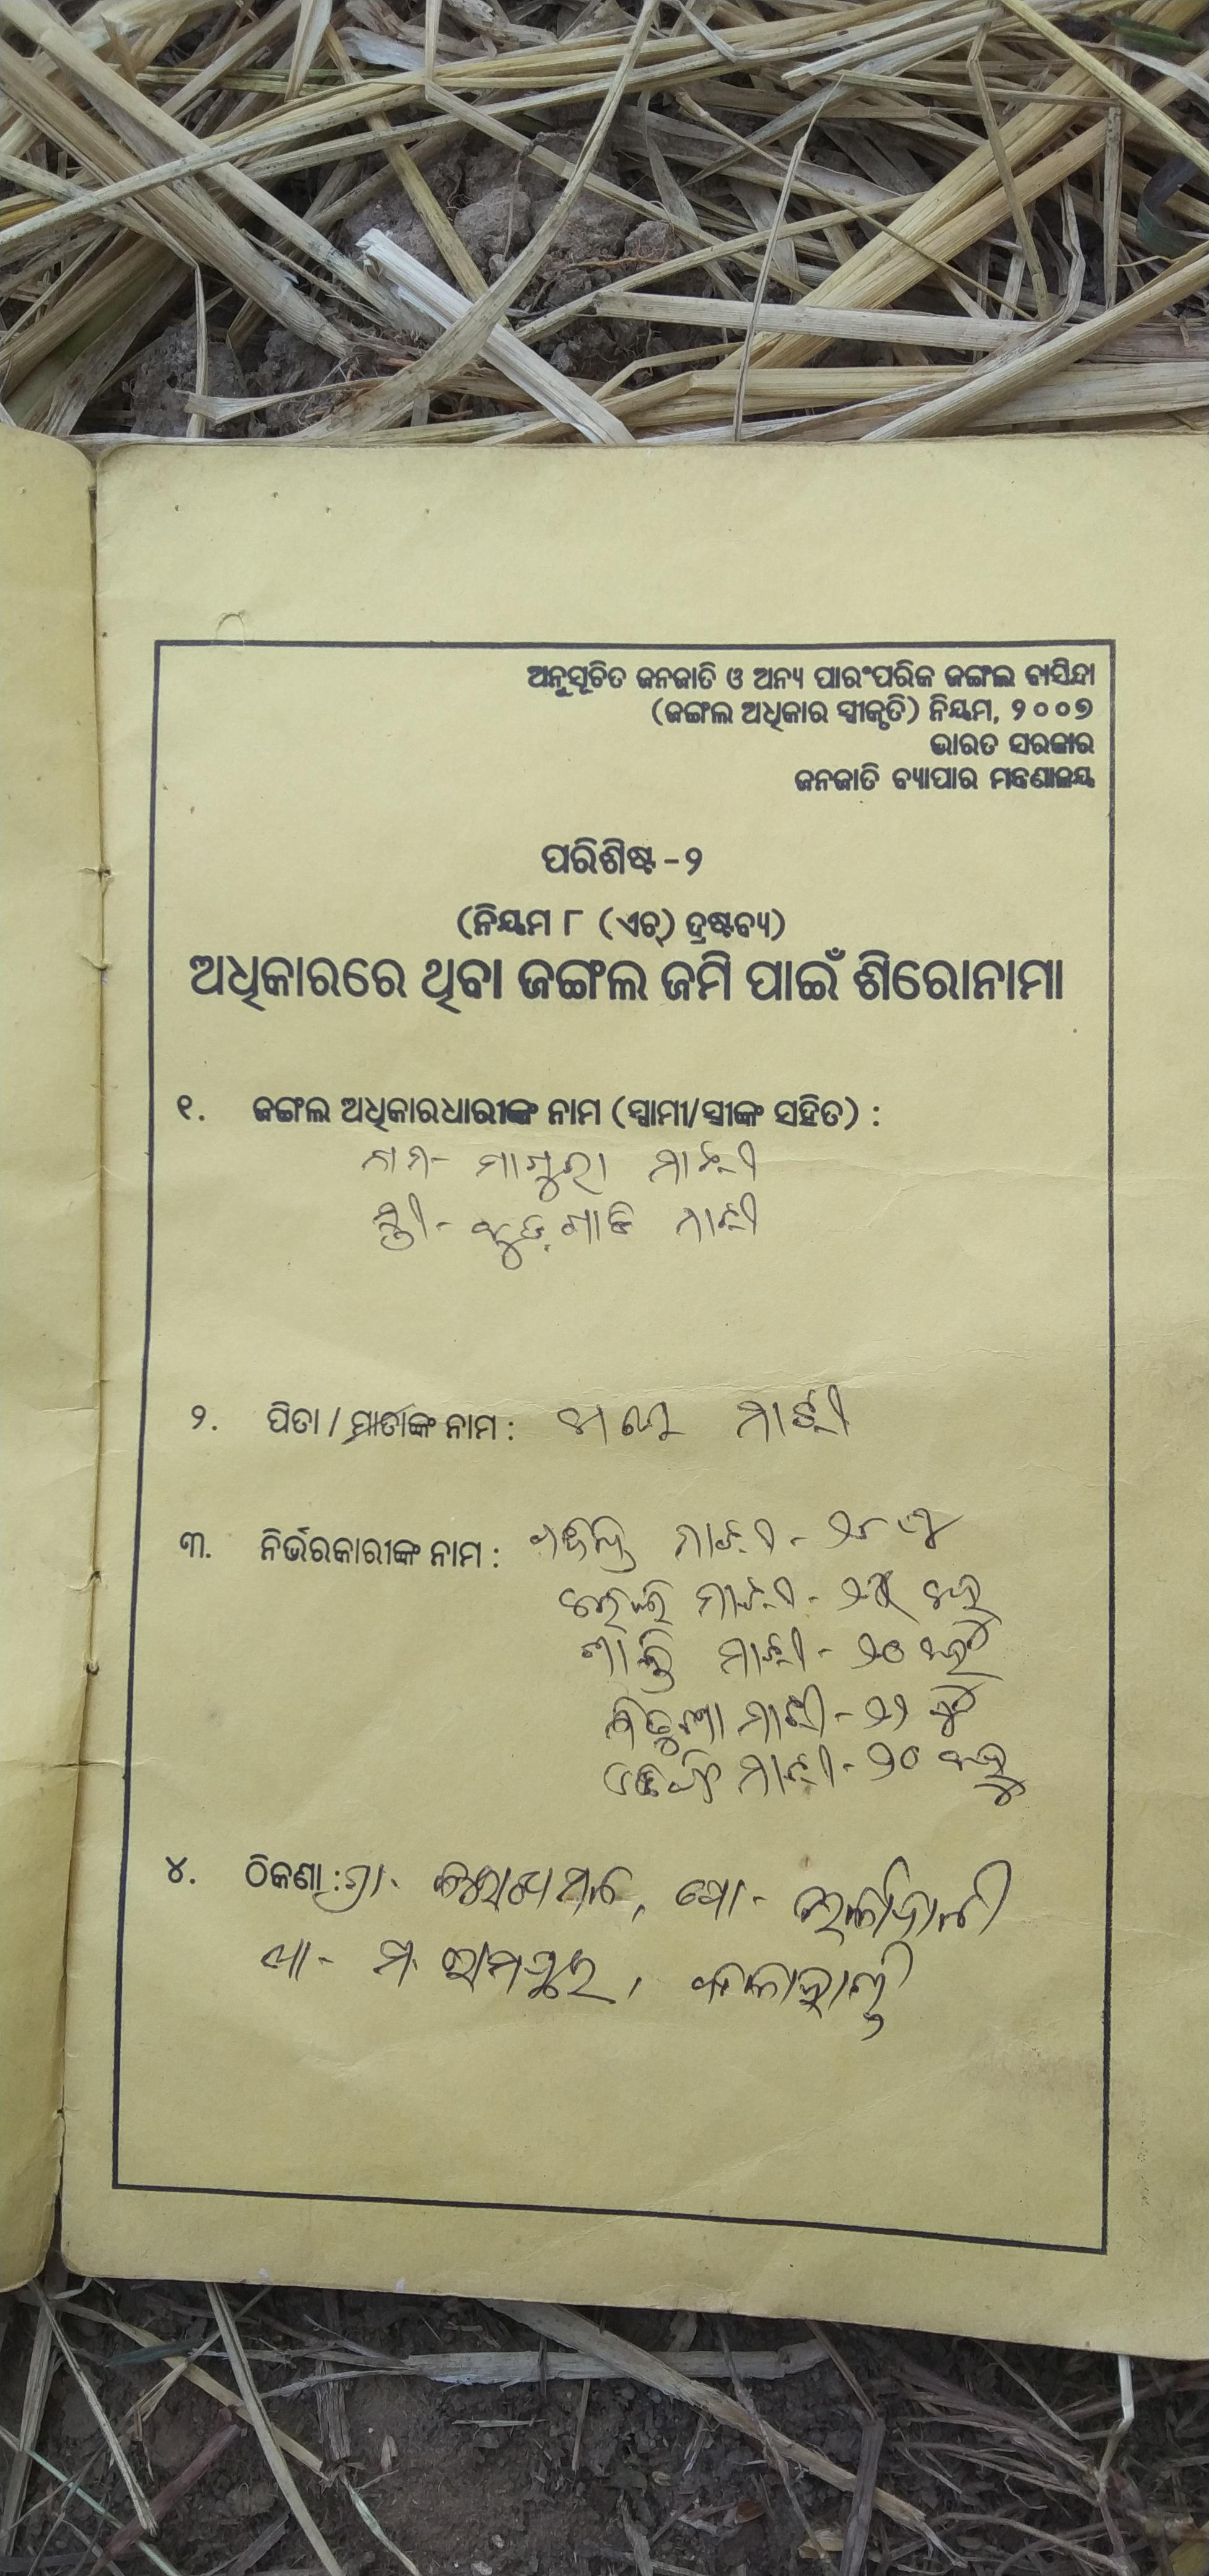 ଅନୁସୂଚିତ ଜନଜାତି ଓ ଅନ୍ୟ ପାରଂପରିକ ଜଙ୍ଗଲ ବାସିନ୍ଦା
(ଜଙ୍ଗଲ ଅଧିକାର ସ୍ୱୀକୃତି) ନିୟମ, ୨୦୦୭
ଭାରତ ସରକାର
ଜନଜାତି ବ୍ୟାପାର ମନ୍ତ୍ରଣାଳୟ
ପରିଶିଷ୍ଟ -୨
(ନିୟମ ୮ (ଏଚ୍) ଦ୍ରଷ୍ଟବ୍ୟ)
ଅଧିକାରରେ ଥିବା ଜଙ୍ଗଲ ଜମି ପାଇଁ ଶିରୋନାମା
୧. ଜଙ୍ଗଲ ଅଧିକାରଧାରୀଙ୍କ ନାମ (ସ୍ୱାମୀ/ସ୍ତ୍ରୀଙ୍କ ସହିତ) :
ନାମ- ମାଗୁରା ମାଝୀ
ସ୍ତ୍ରୀ- ମାଝୀ
୨. ପିତା / ମାତାଙ୍କ ନାମ : ମାଝୀ
୩. ନିର୍ଭରକାରୀଙ୍କ ନାମ : ମାଝୀ - ୨୮
ମାଝୀ -
ଶାନ୍ତି ମାଝୀ - ୨୦
ମାଝୀ - ୨୨
ମାଝୀ - ୨୦
୪. ଠିକଣା : ଗ୍ରା- ପୋ-
ଥା- ମ. ରାମପୁର, କଳାହାଣ୍ଡି